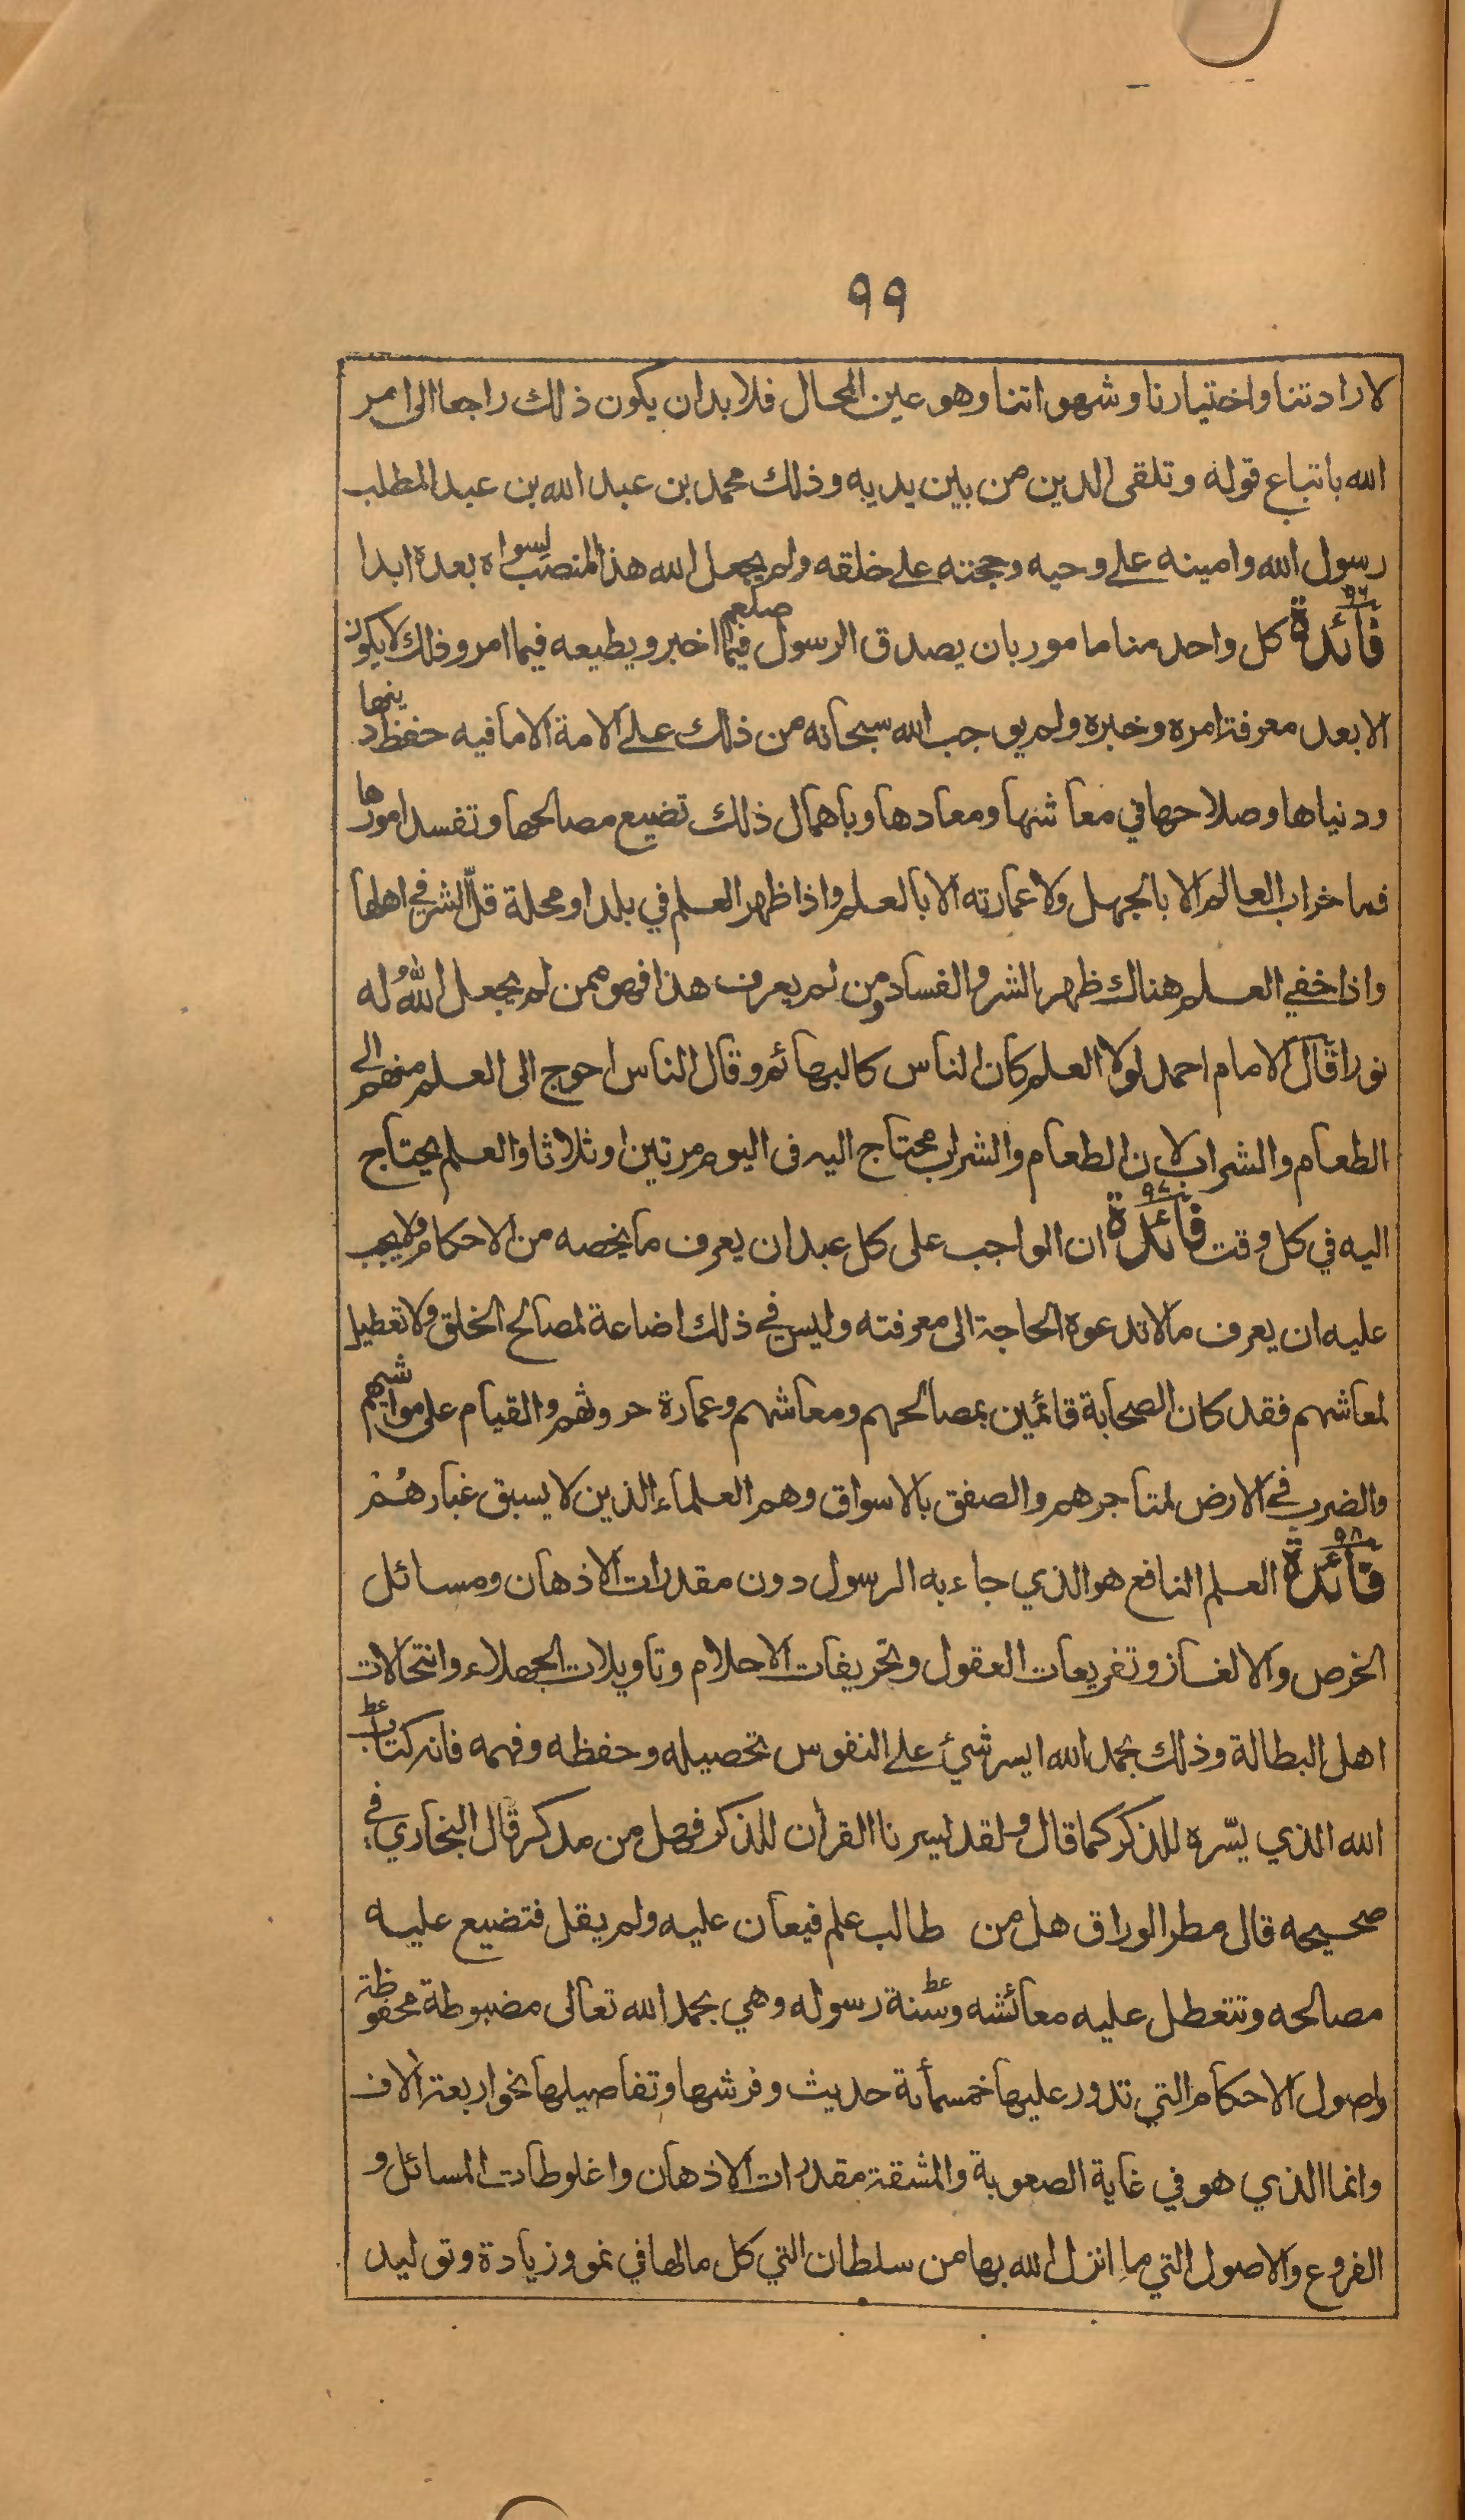 ٩٩
لارادتنا واختيارنا وشهواتنا وهو عين المحال فلا بد ان يكون ذلك راجعا الى امر
الله باتباع قوله وتلقى الدين من بين يديه وذلك محمد بن عبد الله بن عبد المطلب
رسول الله وامينه على وحيه وحجته على خلقه ولم يجعل الله هذا المنصب لسواه بعده ابدا
فائدة ٩٦ كل واحد منا مامور بان يصدق الرسول صلعم فيما اخبر ويطيعه فيما امر وذلك لا يكون
الا بعد معرفة امره وخبره ولم يوجب الله سبحانه من ذلك على الامة الا ما فيه حفظ دينها
ودنياها وصلاحها في معاشها ومعادها وباهمال ذلك تضيع مصالحها وتفسد امورها
فما خراب العالم الا بالجهل ولا عمارته الا بالعلم واذا ظهر العلم في بلد او محلة قلّ الشر في اهلها
واذا خفي العلم هناك ظهر الشر والفساد ومن لم يعرف هذا فهو ممن لم يجعل اللهُ له
نورا قال الامام احمد لولا العلم كان الناس كالبهائم وقال الناس احوج الى العلم منهم الى
الطعام والشراب لان الطعام والشراب محتاج اليه فى اليوم مرتين او ثلاثا والعلم يحتاج
اليه في كل وقت فائدة ٩٧ ان الواجب على كل عبد ان يعرف ما يخصه من الاحكام ولا يجب
عليه ان يعرف ما لا تدعوه الحاجة الى معرفته وليس في ذلك اضاعة لمصالح الخلق ولا تعطيل
لمعاشهم فقد كان الصحابة قائمين بمصالحهم ومعاشهم وعمارة حروثهم والقيام على مواشيهم
والضرب في الارض لمتاجرهم والصفق بالاسواق وهم العلماء الذين لا يسبق غبارهُمْ
فائدة ٩٨ العلم النافع هو الذي جاء به الرسول دون مقدرات الاذهان ومسائل
الخرص والالغاز وتفريعات العقول وتحريفات الاحلام وتاويلات الجهلاء وانتحالات
اهل البطالة وذلك بحمد الله ايسر شيئ على النفوس تحصيله وحفظه وفهمه فانه كتاب
الله الذي يسّره للذكر كما قال ولقد يسرنا القرأن للذكر فهل من مدكر قال البخاري في
صحيحه قال مطر الوراق هل من طالب علم فيعان عليه ولم يقل فتضيع عليه
مصالحه وتتعطل عليه معائشه وسنة رسوله وهي بحمد الله تعالى مضبوطة محفوظة
واصول الاحكام التي تدور عليها خمسمأبة حديث وفرشها وتفاصيلها نحو اربعة الاف
وانما الذي هو في غاية الصعوبة والمشقة مقدرات الاذهان واغلوطات المسائل و
الفروع والاصول التي ما انزل الله بها من سلطان التي كل مالها في نمو وزيادة وتوليد